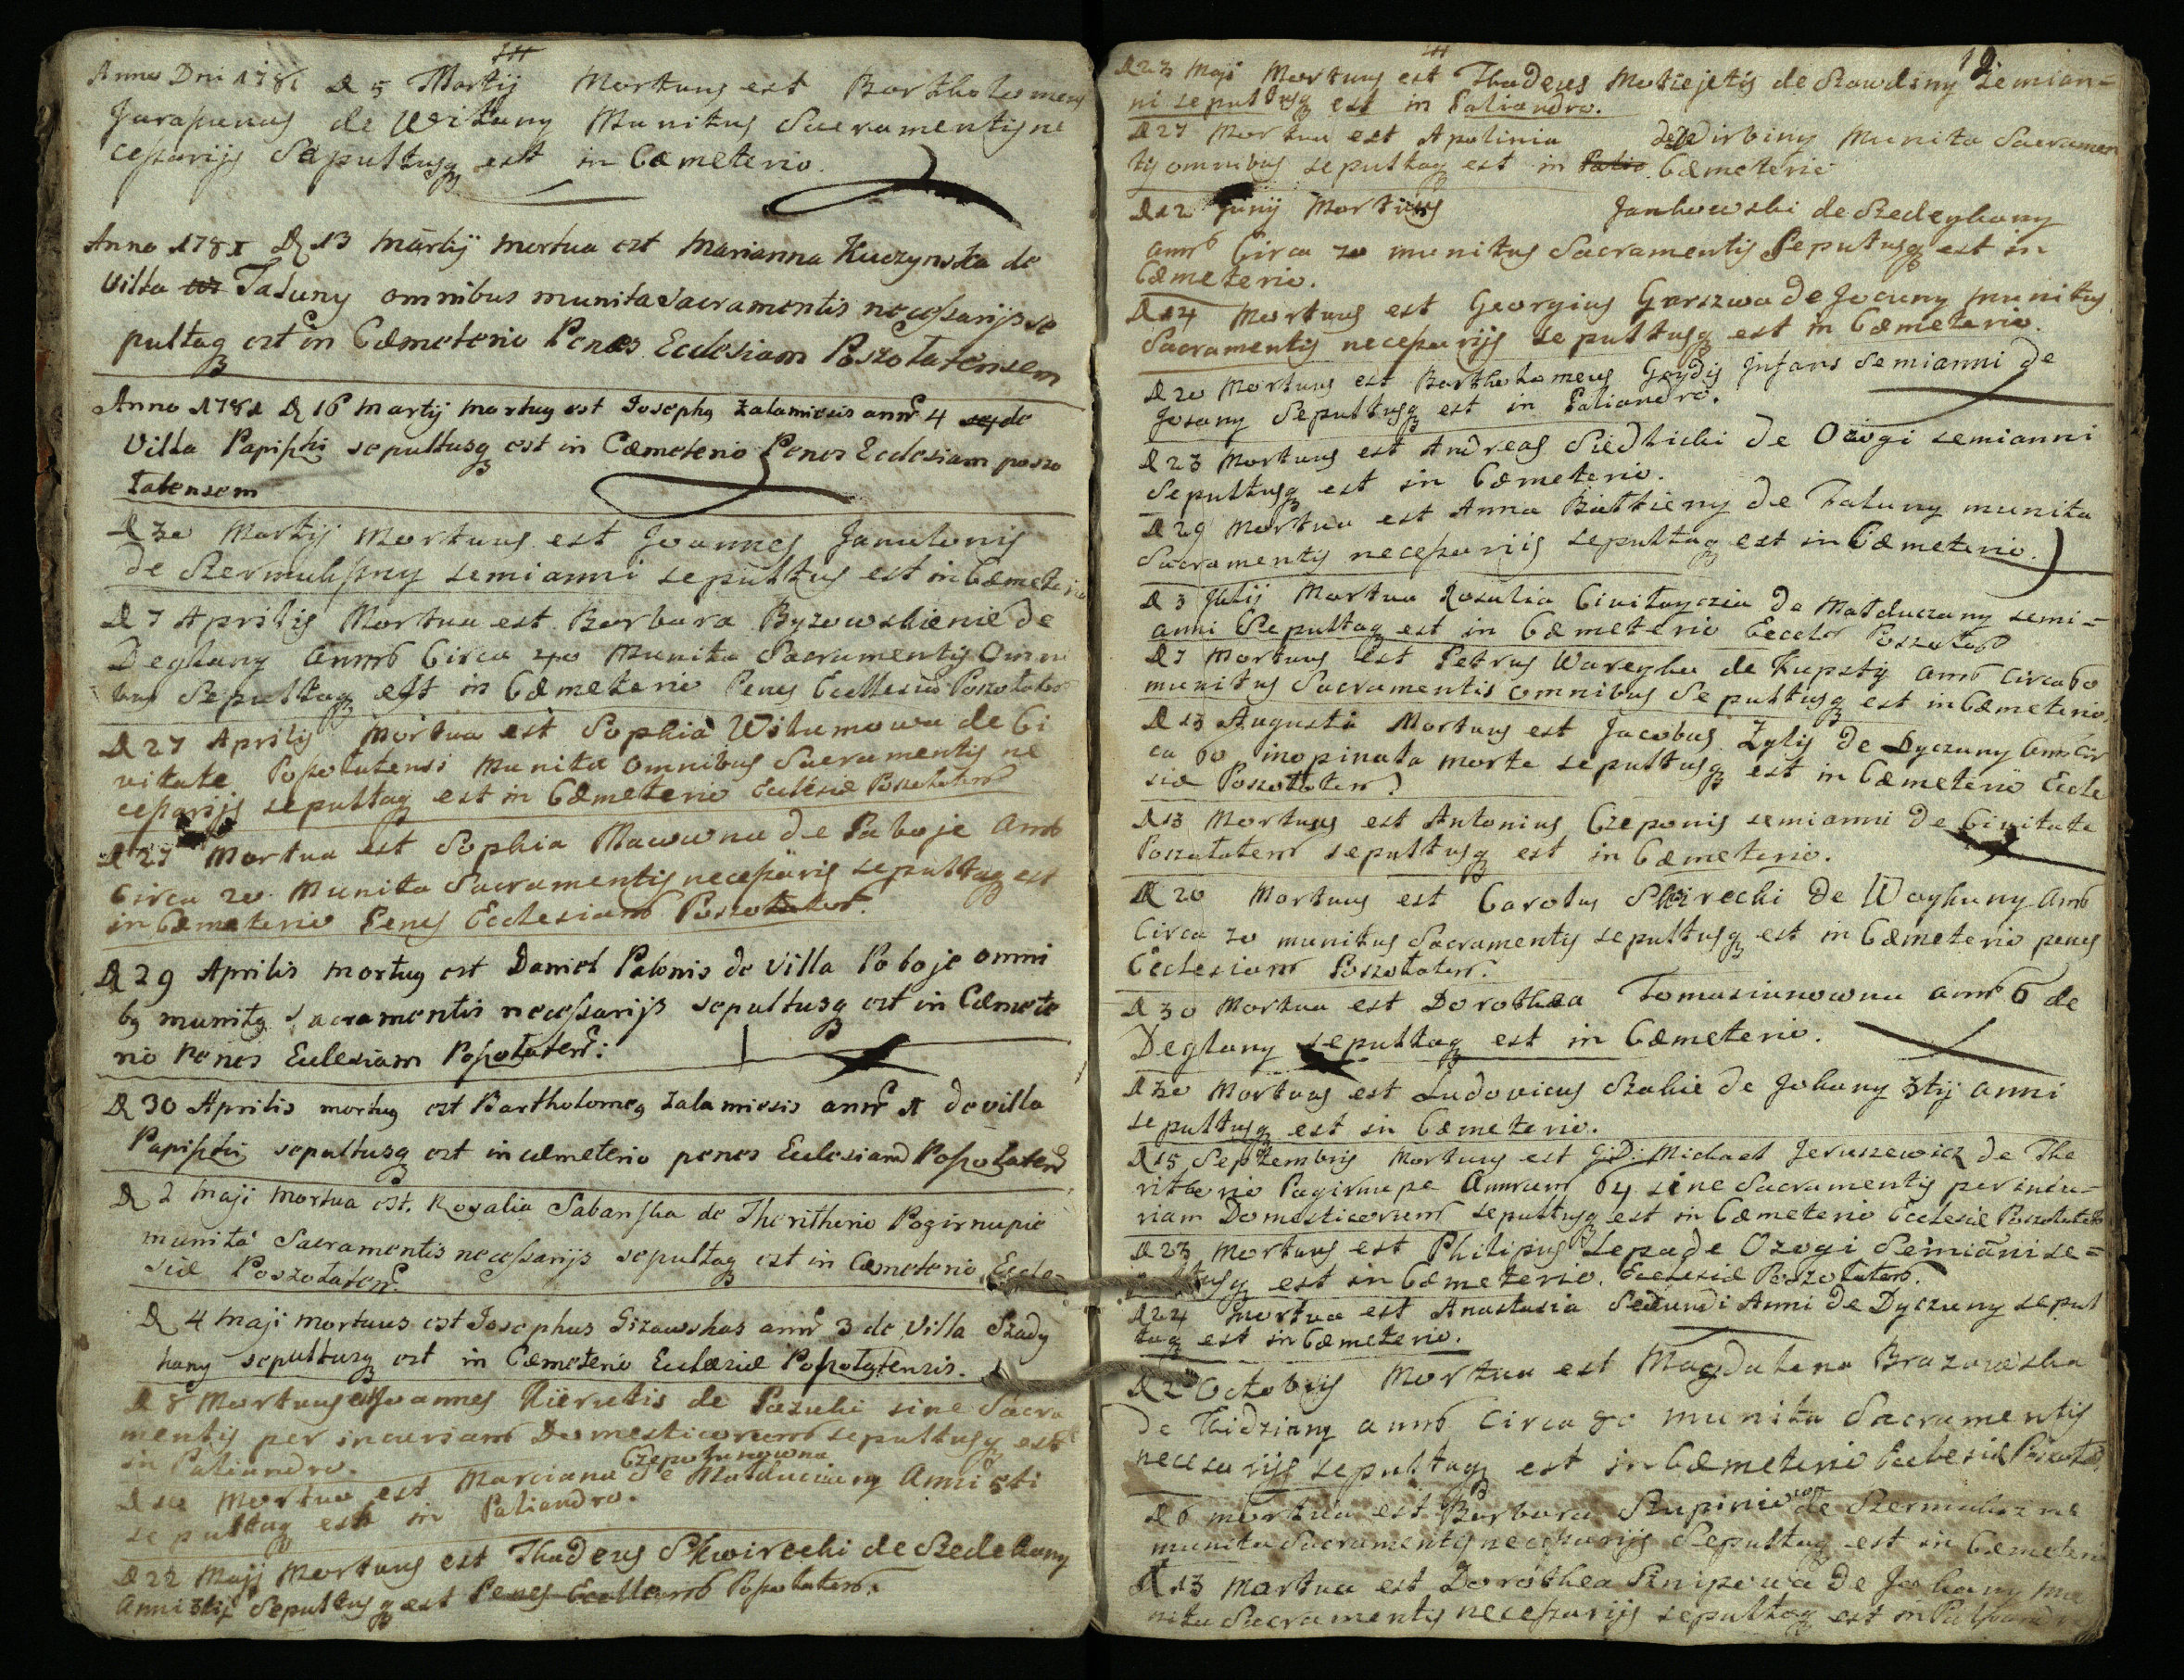 Anno Dni 1781 D 5 Martij Mortuus est Bartholomeus
Jurapunas de Wituny Munitus Sacramentis ne
cessarijs Sepultusq est in Cæmeterio.
Anno 1781 D 13 martij mortua est Marianna Kuczynska de
Villa Taluny omnibus munita Sacramentis necessarijs se
pultaq est in Cæmeterio Penes Ecclesiam Poszołatensem
Anno 1781 D 16 martij mortuq est Josephq Zalamiesis annr 4 de
Villa Papiszki sepultusq est in Cæmeterio Penes Ecclesiam poszo
łatensem
D 30 Martij Mortuus est Joannes Janulonis
de Szermuliszny semianni sepultus est in Cæmeterio
D 7 Aprilis Mortua est Barbara Byzowskienie de
Deglany annrb Circa 40 Munita Sacramentis Omni
bus Sepultaq est in Cæmeterio Penes Ecclesia Poszołaten
D 27 Aprilis Mortua est Sophia Witumowa de Ci
vitate Poszołatensi Munita Omnibus Sacramentis ne
cessarijs sepultaq est in Cæmeterio Eclesiæ Poszołaten
D 27 Mortua est Sophia Macowna de Paboje Annb
Circa 20 Munita Sacramentis necessaris sepultaq est
in Cæmeterio Penes Ecclesiam Poszołaten.
D 29 Aprilis mortuq est Daniel Palonis de Villa Poboje omni
bq munitq Sacramentis necessarijs sepultusq est in Cæmete
rio Penes Ecclesiam Poszołaten:
D 30 Aprilis mortuq est Bartholomeq Zalamiesis annr 1 de villa
Papiszki sepultusq est in cæmeterio penes Ecclesiam Poszołaten
D 2 Maji mortua est. Rosalia Sabanska de Theritherio Pogirnupie
munita Sacramentis necessarijs sepultaq est in Cæmeterio Eccle-
siæ Poszołaten.
D 4 maji mortuus est Josephus Gizowskas annr 3 de Villa Szady
kany sepultusq est in Cæmeterio Ecclæsiæ Poszołatensis.
D 8 Mortuus est Joannes Kierutis de Pazuki sine Sacra
mentis per incuriam Domesticorum sepultusq est
in Paliandro.
D 10 Mortua est Marciana Czepołunowna de Malduciuny Anni 5ti
sepultaq est in Paliandro.
D 22 Maji Mortuus est Thadeus Skwirecki de Szedekany
Anni 3tij Sepultusq est Penes Ecclam Poszołaten.
12
D 23 Maji Mortuus est Thadeus Maciejetis de Szawdiny Semian=
ni sepultusq est in Paliandro.
D 27 Mortua est Apolinia de Dirbiny Munita Sacramen
tis omnibus sepultaq est in Cæmeterio
D 12 Junij Mortuus Jankowski de Szedeykany
annrb Circa 70 munitus Sacramentis Sepultusq est in
Cæmeterio.
D 14 Mortuus est Georgius Gerszwa de Jocuny munitus
Sacramentis necessarijs sepultusq est in Cæmeterio.
D 20 Mortuus est Bartholomeus Geydis Infans Semianni de
Josany Sepultusq est in Paliandro.
D 23 Mortuus est Andreas Siedlicki de Ozogi semianni
Sepultusq est in Cæmeterio.
D 29 Mortua est Anna Butkieny de Taluny munita
Sacramentis necessariis sepultaq est in Cæmeterio.
D 3 Julij Mortua Rosalia de Malduczany semi=
anni Sepultaq est in Cæmeterio Poszołat
D 7 Mortuus est Petrus Wareyko de Kupsty annb circa 60
munitus Sacramentis omnibus Sepultusq est in Cæmeterio.
D 13 Augusti Mortuus est Jacobus Zylis de Dyczuny Annb Cir
ca 60 inopinata morte sepultusq est in Cæmeterio Eccle
siæ Poszołaten.
D 13 Mortuus est Antonius Czeponis semianni de Civitate
Poszołaten sepultusq est in Cæmeterio.
D 20 Mortuus est Carolus Skirecki de Woykuny Annb
Circa 70 munitus Sacramentis sepultusq est in Cæmeterio penes
Ecclesiam Poszołaten.
D 30 Mortua est Dorothea Tomasiunowna annr 6 de
Deglany sepultaq est in Cæmeterio.
D 30 Mortuus est Ludovicus Szakie de Jokany 3tij anni
sepultusq est in Cæmeterio.
D 15 Septembris Mortuus est G:D: Michael Jeruszewicz de The
ritherio Pagirnupe Annrum 64 sine Sacramentis per incu-
riam Domesticorum sepultusq est in Cæmeterio Ecclesiæ Poszołaten
D 23 Mortuus est Philipus Lepa de Ozogi Semianni se=
pultusq est in Cæmeterio. Ecclesiæ Poszołaten.
D 24 Mortua est Anastasia Secundi Anni de Dyczuny sepul
taq est in Cæmeterio.
D 2 Octobris Mortua est Magdalena Brazowska
de Kidziany annrb circa 80 munita Sacramentis
necesarijs sepultaq est in Cæmeterio Eclesiæ Poszołat
D 6 mortua est Barbara Szupiniowa de Szermulizne
munita Sacramentis necessarijs Sepultaq est in Cæmeterio
D 13 Mortua est Dorothea Snipowa de Jokany mu
nita Sacramentis necessarijs sepultaq est in Paliandro